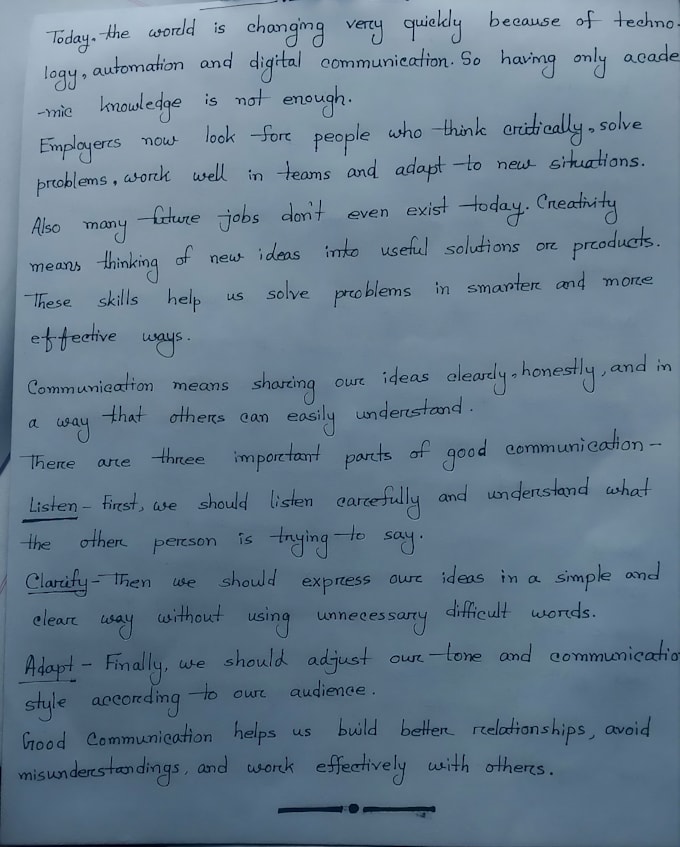 Today, the world is changing very quickly because of techno-
logy, automation and digital communication. So having only acade
-mic knowledge is not enough.
Employers now look for people who think critically, solve
problems, work well in teams and adapt to new situations.
Also many future jobs don't even exist today. Creativity
means thinking of new ideas into useful solutions or products.
These skills help us solve problems in smarter and more
effective ways.
Communication means sharing our ideas clearly, honestly, and in
a way that others can easily understand.
There are three important parts of good communication -
Listen - First, we should listen carefully and understand what
the other person is trying to say.
Clarify - Then we should express our ideas in a simple and
clear way without using unnecessary difficult words.
Adapt - Finally, we should adjust our tone and communicatio
style according to our audience.
Good Communication helps us build better relationships, avoid
misunderstandings, and work effectively with others.